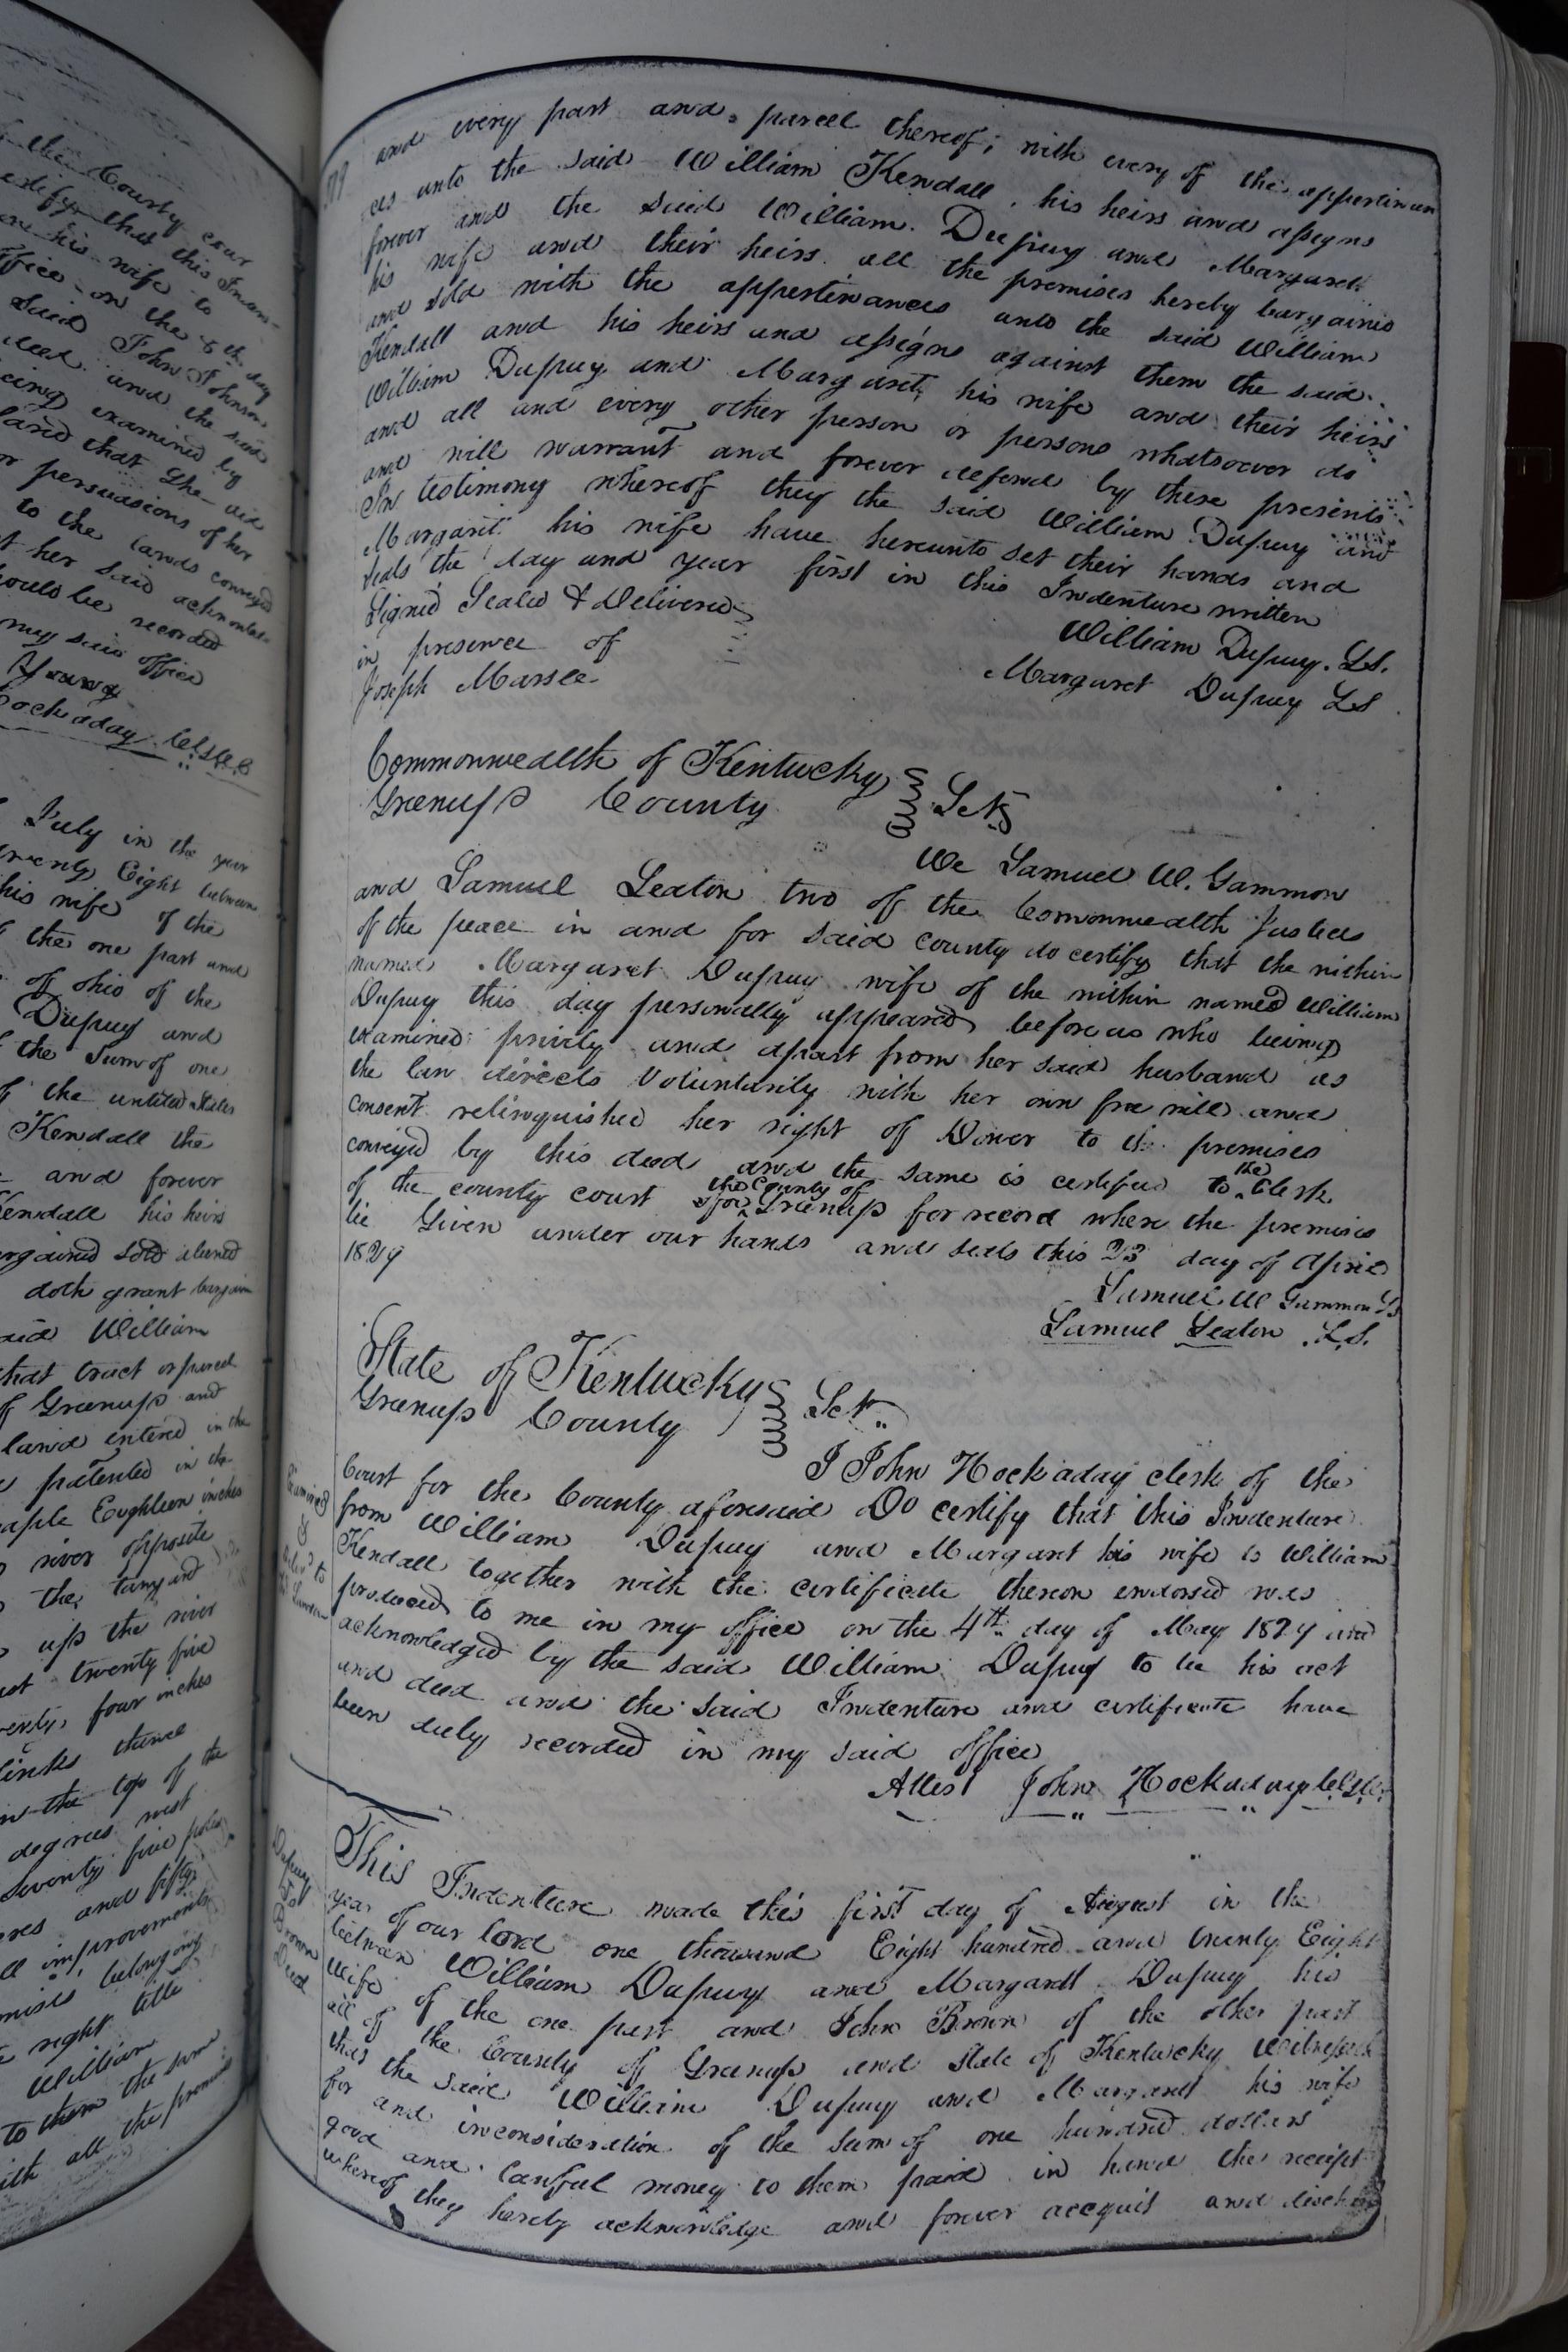 the County cour
certify that this Inden-
his wife to
office on the 6th day
said John Johnson
deed and the said
being examined by
and that she did
or persuasions of her
to the lands conveyed
t her said acknowled-
ould be recorded
my said office
Young
ockaday Clk
July in the year
twenty Eight between
his wife of the
the one part and
of ohio of the
Dupuy and
the Sum of one
the united States
Kendall the
and forever
Kendall his heirs
bargained sold aliened
doth grant bargain
said William
that tract or parcel
of Greenup and
land entered in the
patented in the
maple Eighteen inches
river opposite
the tanyard
up the river
twenty five
twenty four inches
links thence
the top of the
degrees west
seventy five poles
acres and fifty
all improvements
belonging
right title
William
to them the sum
with all the premises
and every part and parcell thereof; with every of the appertinan
ces unto the said William Kendall, his heirs and assigns
forever and the said William Dupuy and Margaret
his wife and their heirs all the premises hereby bargained
and sold with the appertenances unto the said William
Kendall and his heirs and assigns against them the said
William Dupuy and Margaret his wife and their heirs
and all and every other person or persons whatsoever do
and will warrant and forever defend by these presents
In testimony whereof they the said William Dupuy and
Margarit his wife have hereunto set their hands and
seals the day and year first in this Indenture written
Signed Sealed & Delivered
in presence of
William Dupuy. LS.
Joseph Marsee
Margaret Dupuy LS
Commonwealth of Kentucky
Greenup County Sct
We Samuel W. Gammon
and Samuel Seaton two of the Commonwealth Justices
of the peace in and for said county do certify that the within
named Margaret Dupuy wife of the within named William
Dupuy this day personally appeared before us who being
examined privily and apart from her said husband as
the law directs Voluntarily with her own free will and
consent relinquished her right of Dower to the premises
conveyed by this deed and the same is certified to the Clerk
of the county court for the County of Greenup for record where the premises
lie Given under our hands and seals this 23 day of April
1829
Samuel W Gammon LS
Samuel Seaton L.S.
State of Kentucky
Greenup County Sct
I John Hockaday clerk of the
Court for the County aforesaid Do certify that this Indenture
from William Dupuy and Margaret his wife to William
Kendall together with the certificate thereon endorsed was
produced to me in my office on the 4th day of May 1829 and
acknowledged by the said William Dupuy to be his act
and deed and the said Indenture and certificate have
been duly recorded in my said office
Attest John Hockaday Clk
Examined
&
to
Dupuy
To
Brown
Deed
This Indenture made this first day of August in the
year of our lord one thousand Eight hundred and twenty Eight
between William Dupuy and Margarett Dupuy his
wife of the one part and John Brown of the other part
all of the County of Greenup and State of Kentucky Witnesseth
that the said William Dupuy and Margarett his wife
for and in consideration of the sum of one hundred dollars
good and lawful money to them paid in hand the receipt
whereof they hereby acknowledge and forever acequit and disch